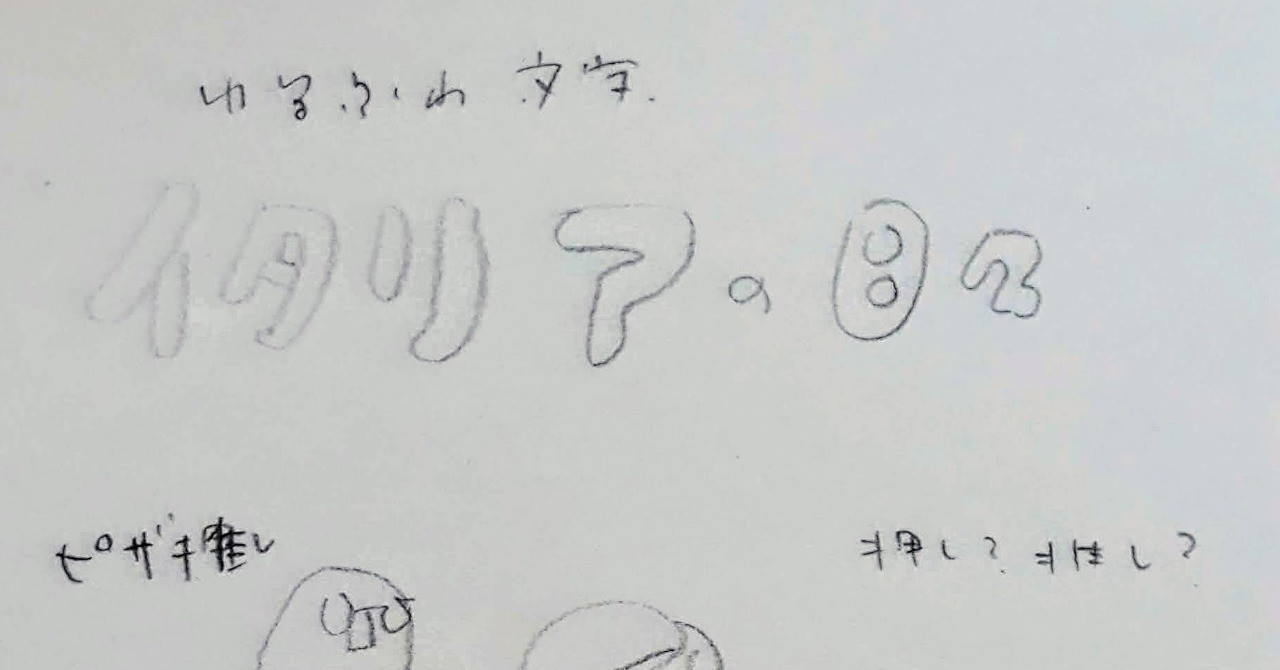 ゆるふわ文字.
イタリアの日々
ピザ推し
押し?推し?